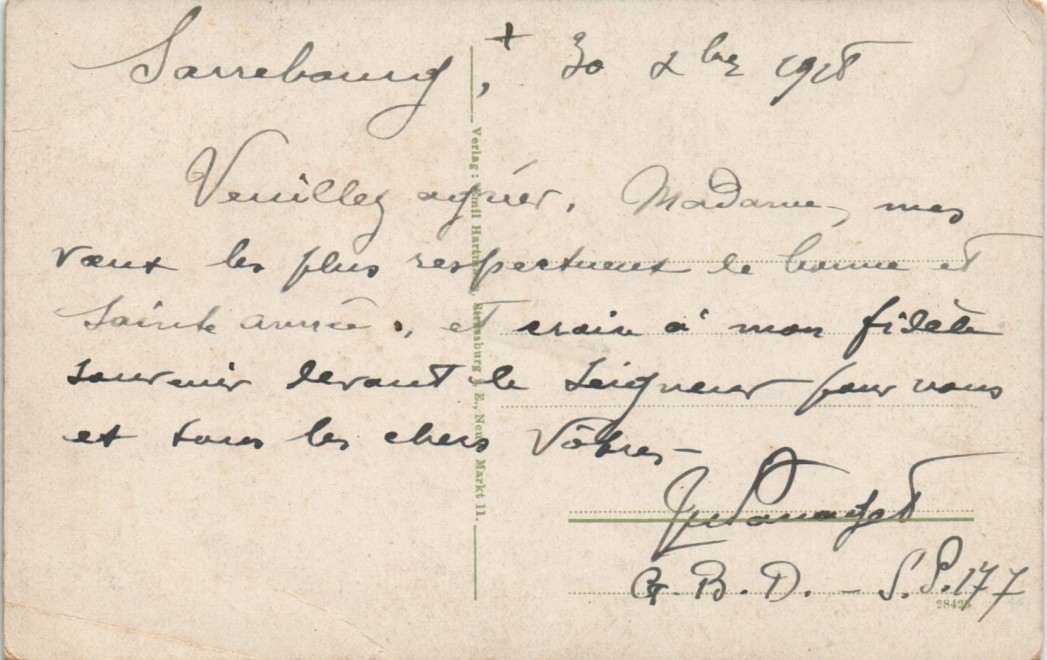 Sarrebourg, + 30 Xbre 1918
Veuillez agréer, Madame, mes
vœux les plus respectueux de bonne et
Sainte année, et croire à mon fidèle
souvenir devant le Seigneur pour vous
et tous les chers Vôtres –
G.B.D. – S.P. 177
Verlag: Emil Hartmann, Strassburg i. E., Neuer Markt 11.